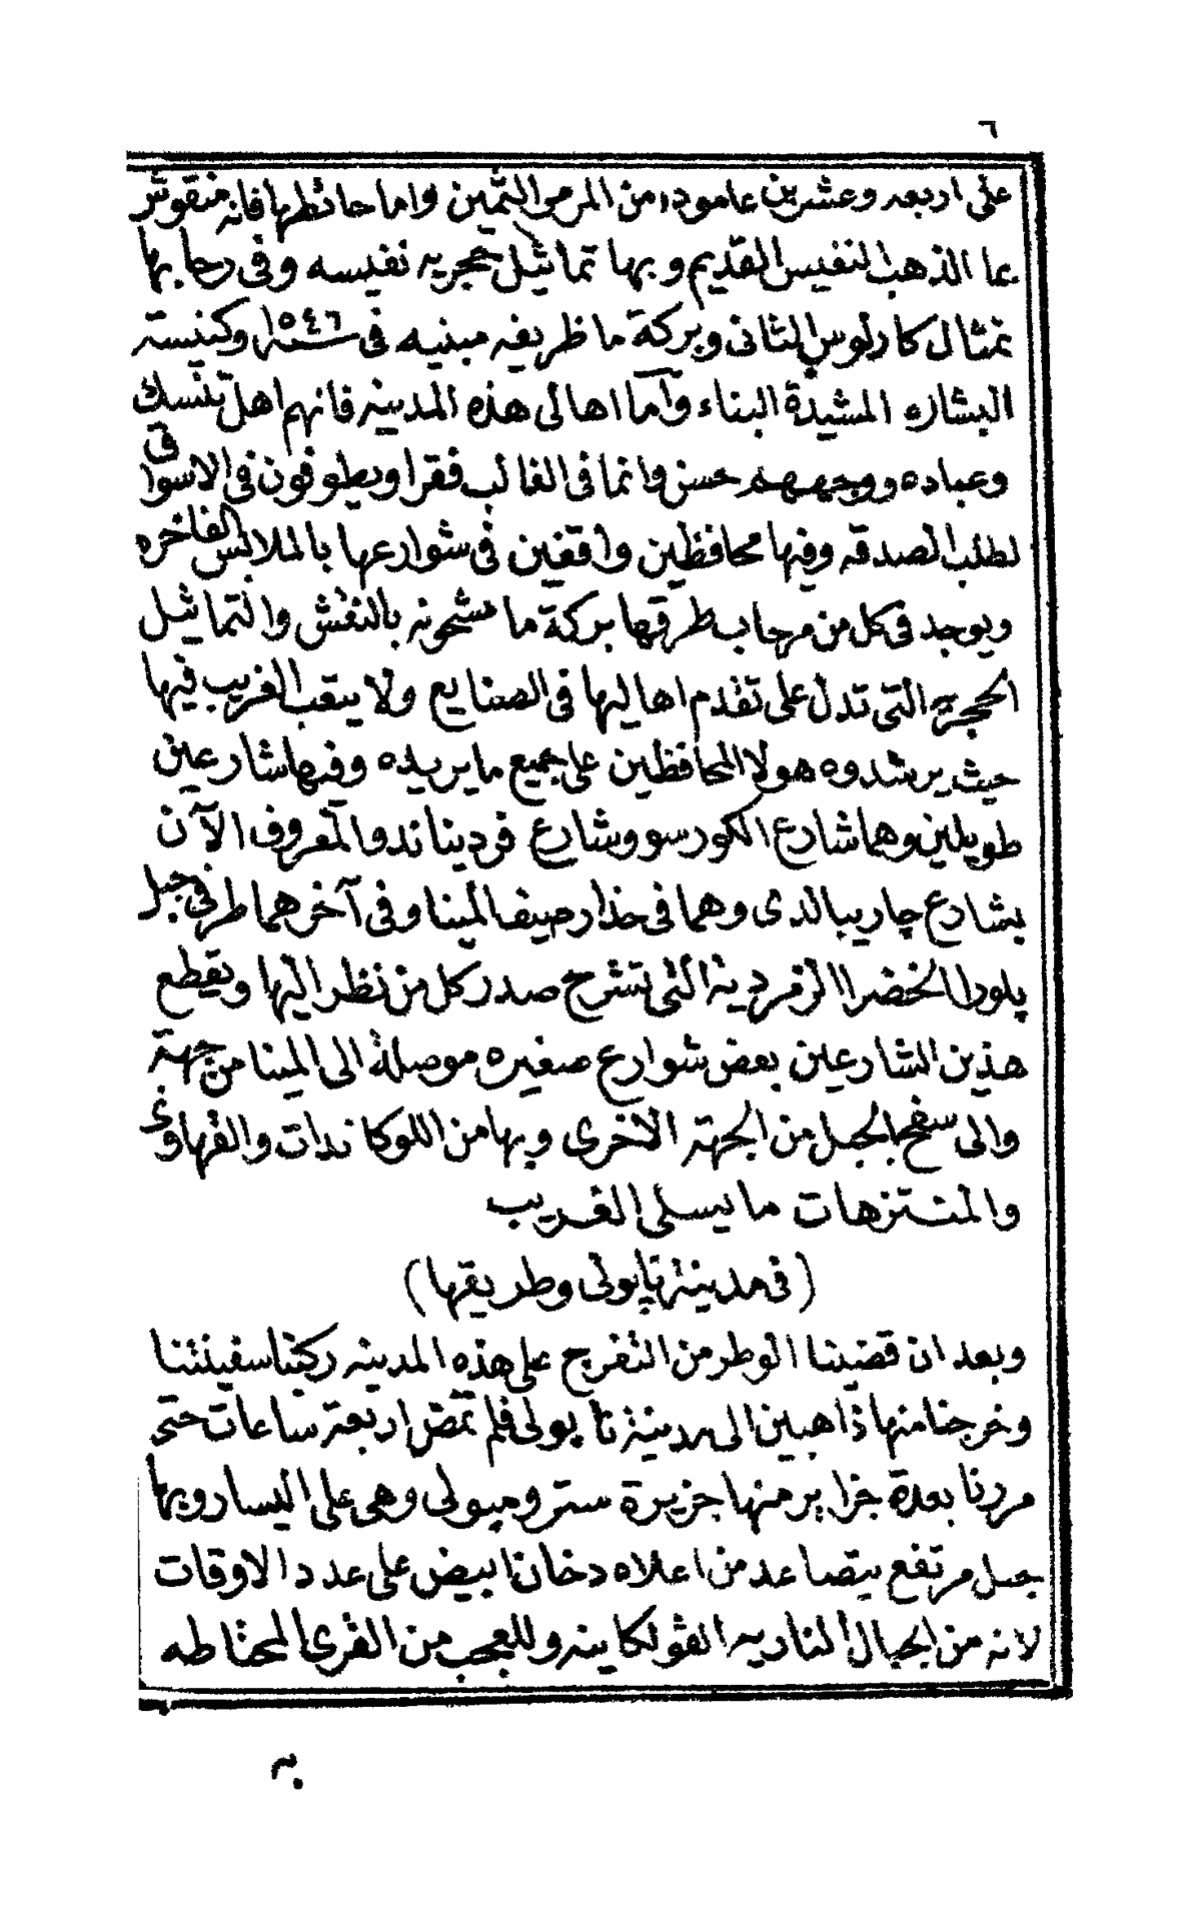 ٦
على اربعه وعشرين عاموده من المرمر الثمين واما حائطها فانه منقوش
بما الذهب النفيس القديم وبها تماثيل حجريه نفيسه وفى رحابها
تمثال كارلوس الثانى وبركة ما ظريفه مبنيه فى سنة ١٥٤٦ وكنيسة
البشاره المشيدة البناء وأما اهالى هذه المدينه فانهم اهل تنسك
وعباده ووجههم حسن وانما فى الغالب فقرا ويطوفون فى الاسواق
لطلب الصدقه وفيها محافظين واقفين فى شوارعها بالملابس الفاخره
ويوجد فى كل من مرحاب طرقها بركة ما مشحونه بالنقش والتماثيل
الحجرية التى تدل على تقدم اهاليها فى الصنايع ولا يتعب الغريب فيها
حيث يرشدوه هولا المحافظين على جميع ما يريده وفيها شارعين
طويلين وهما شارع الكورسو وشارع فرديناندو المعروف الآن
بشارع چاريبالدى وهما فى حذا رصيف المينا وفى آخرهما طرفى جبل
پلورا الخضرا الزمردية التى تشرح صدر كل من نظر اليها ويقطع
هذين الشارعين بعض شوارع صغيره موصلة الى المينا من جهة
والى سفح الجبل من الجهة الاخرى وبها من اللوكاندات والقهاوى
والمنتزهات ما يسلى الغريب
(فى مدينة ناپولى وطريقها)
وبعد ان قضينا الوطر من التفرج على هذه المدينه ركبنا سفينتنا
وخرجنا منها ذاهبين الى مدينة ناپولى فلم تمض اربعة ساعات حتى
مررنا بعدة جزاير منها جزيرة سترومبولى وهى على اليسار وبها
جبل مرتفع يتصاعد من اعلاه دخان ابيض على عدد الاوقات
لانه من الجبال الناريه الفولكانيه وللعجب من القرى المحتاطه
به